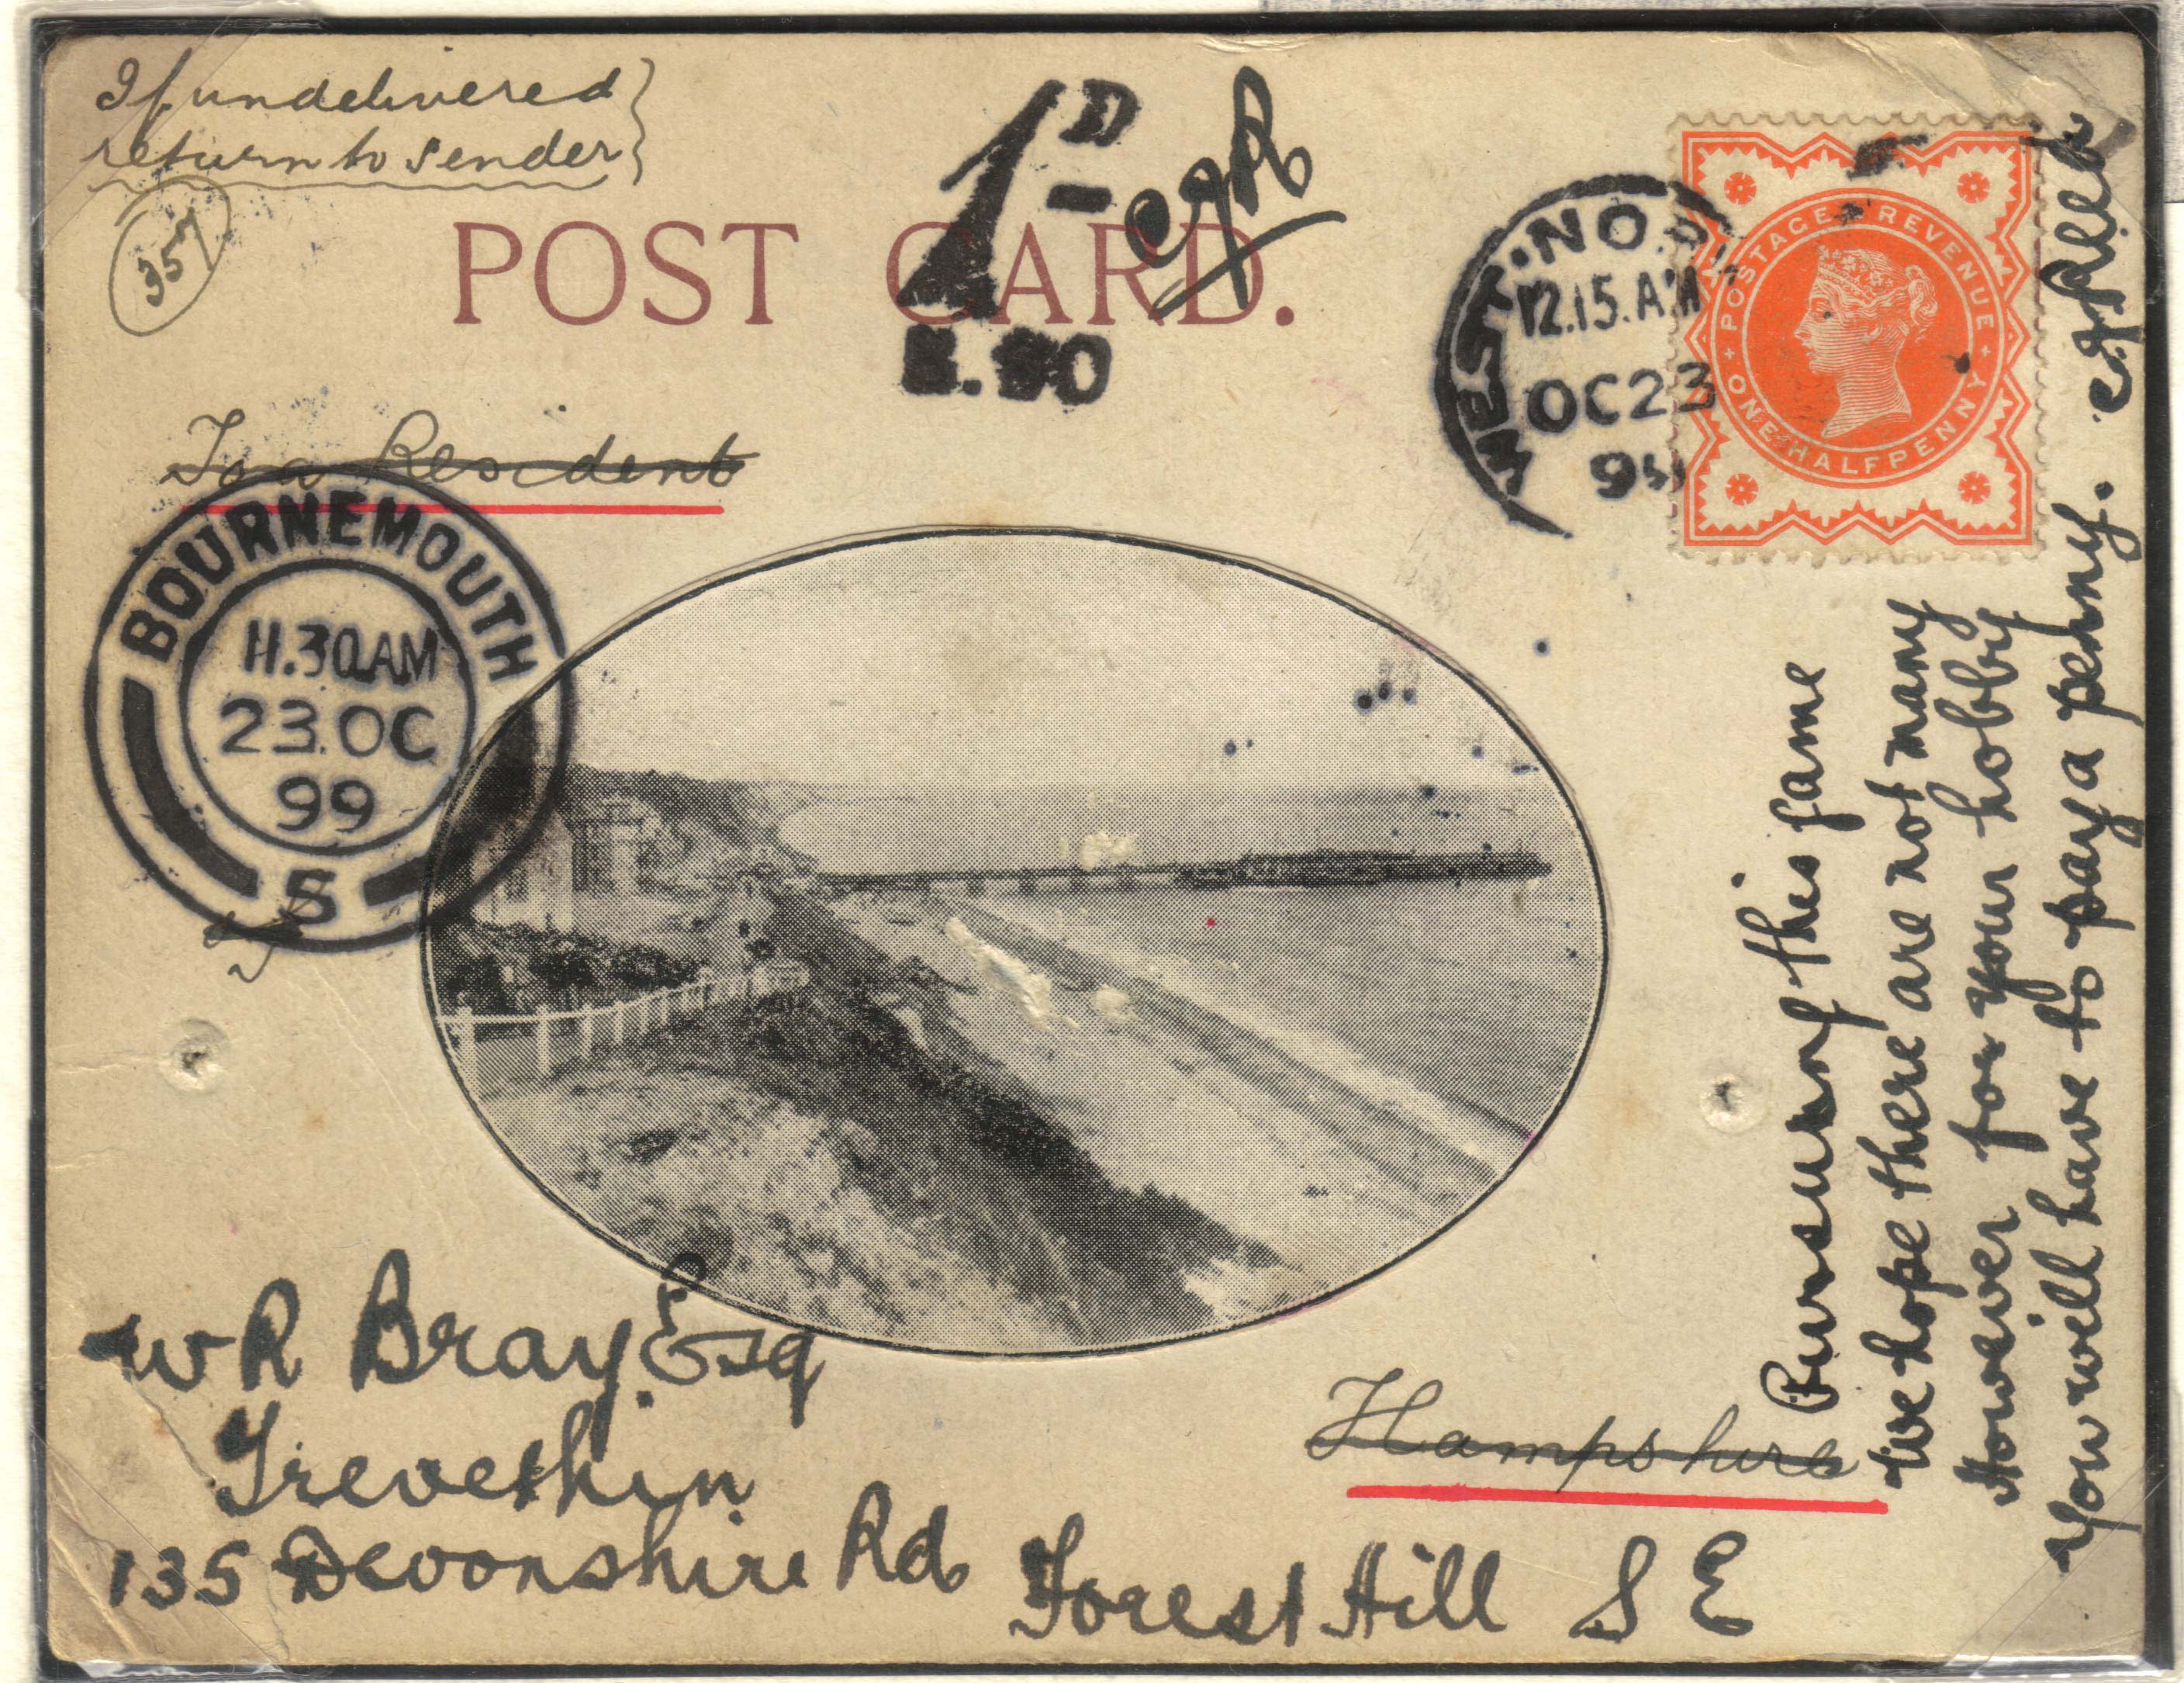 If undelivered
return to sender
357
1D
egR
POST CARD.
To a Resident
WEST. NO.
12.15.AM
OC23
99
POSTAGE & REVENUE
ONE HALFPENNY
BOURNEMOUTH
11.30AM
23.OC
99
S
W R Bray. Esq
Trevethin
135 Devonshire Rd Forest Hill S E
Hampshire
Pursuing this fame
we hope there are not many
However for your hobby
you will have to pay a penny.